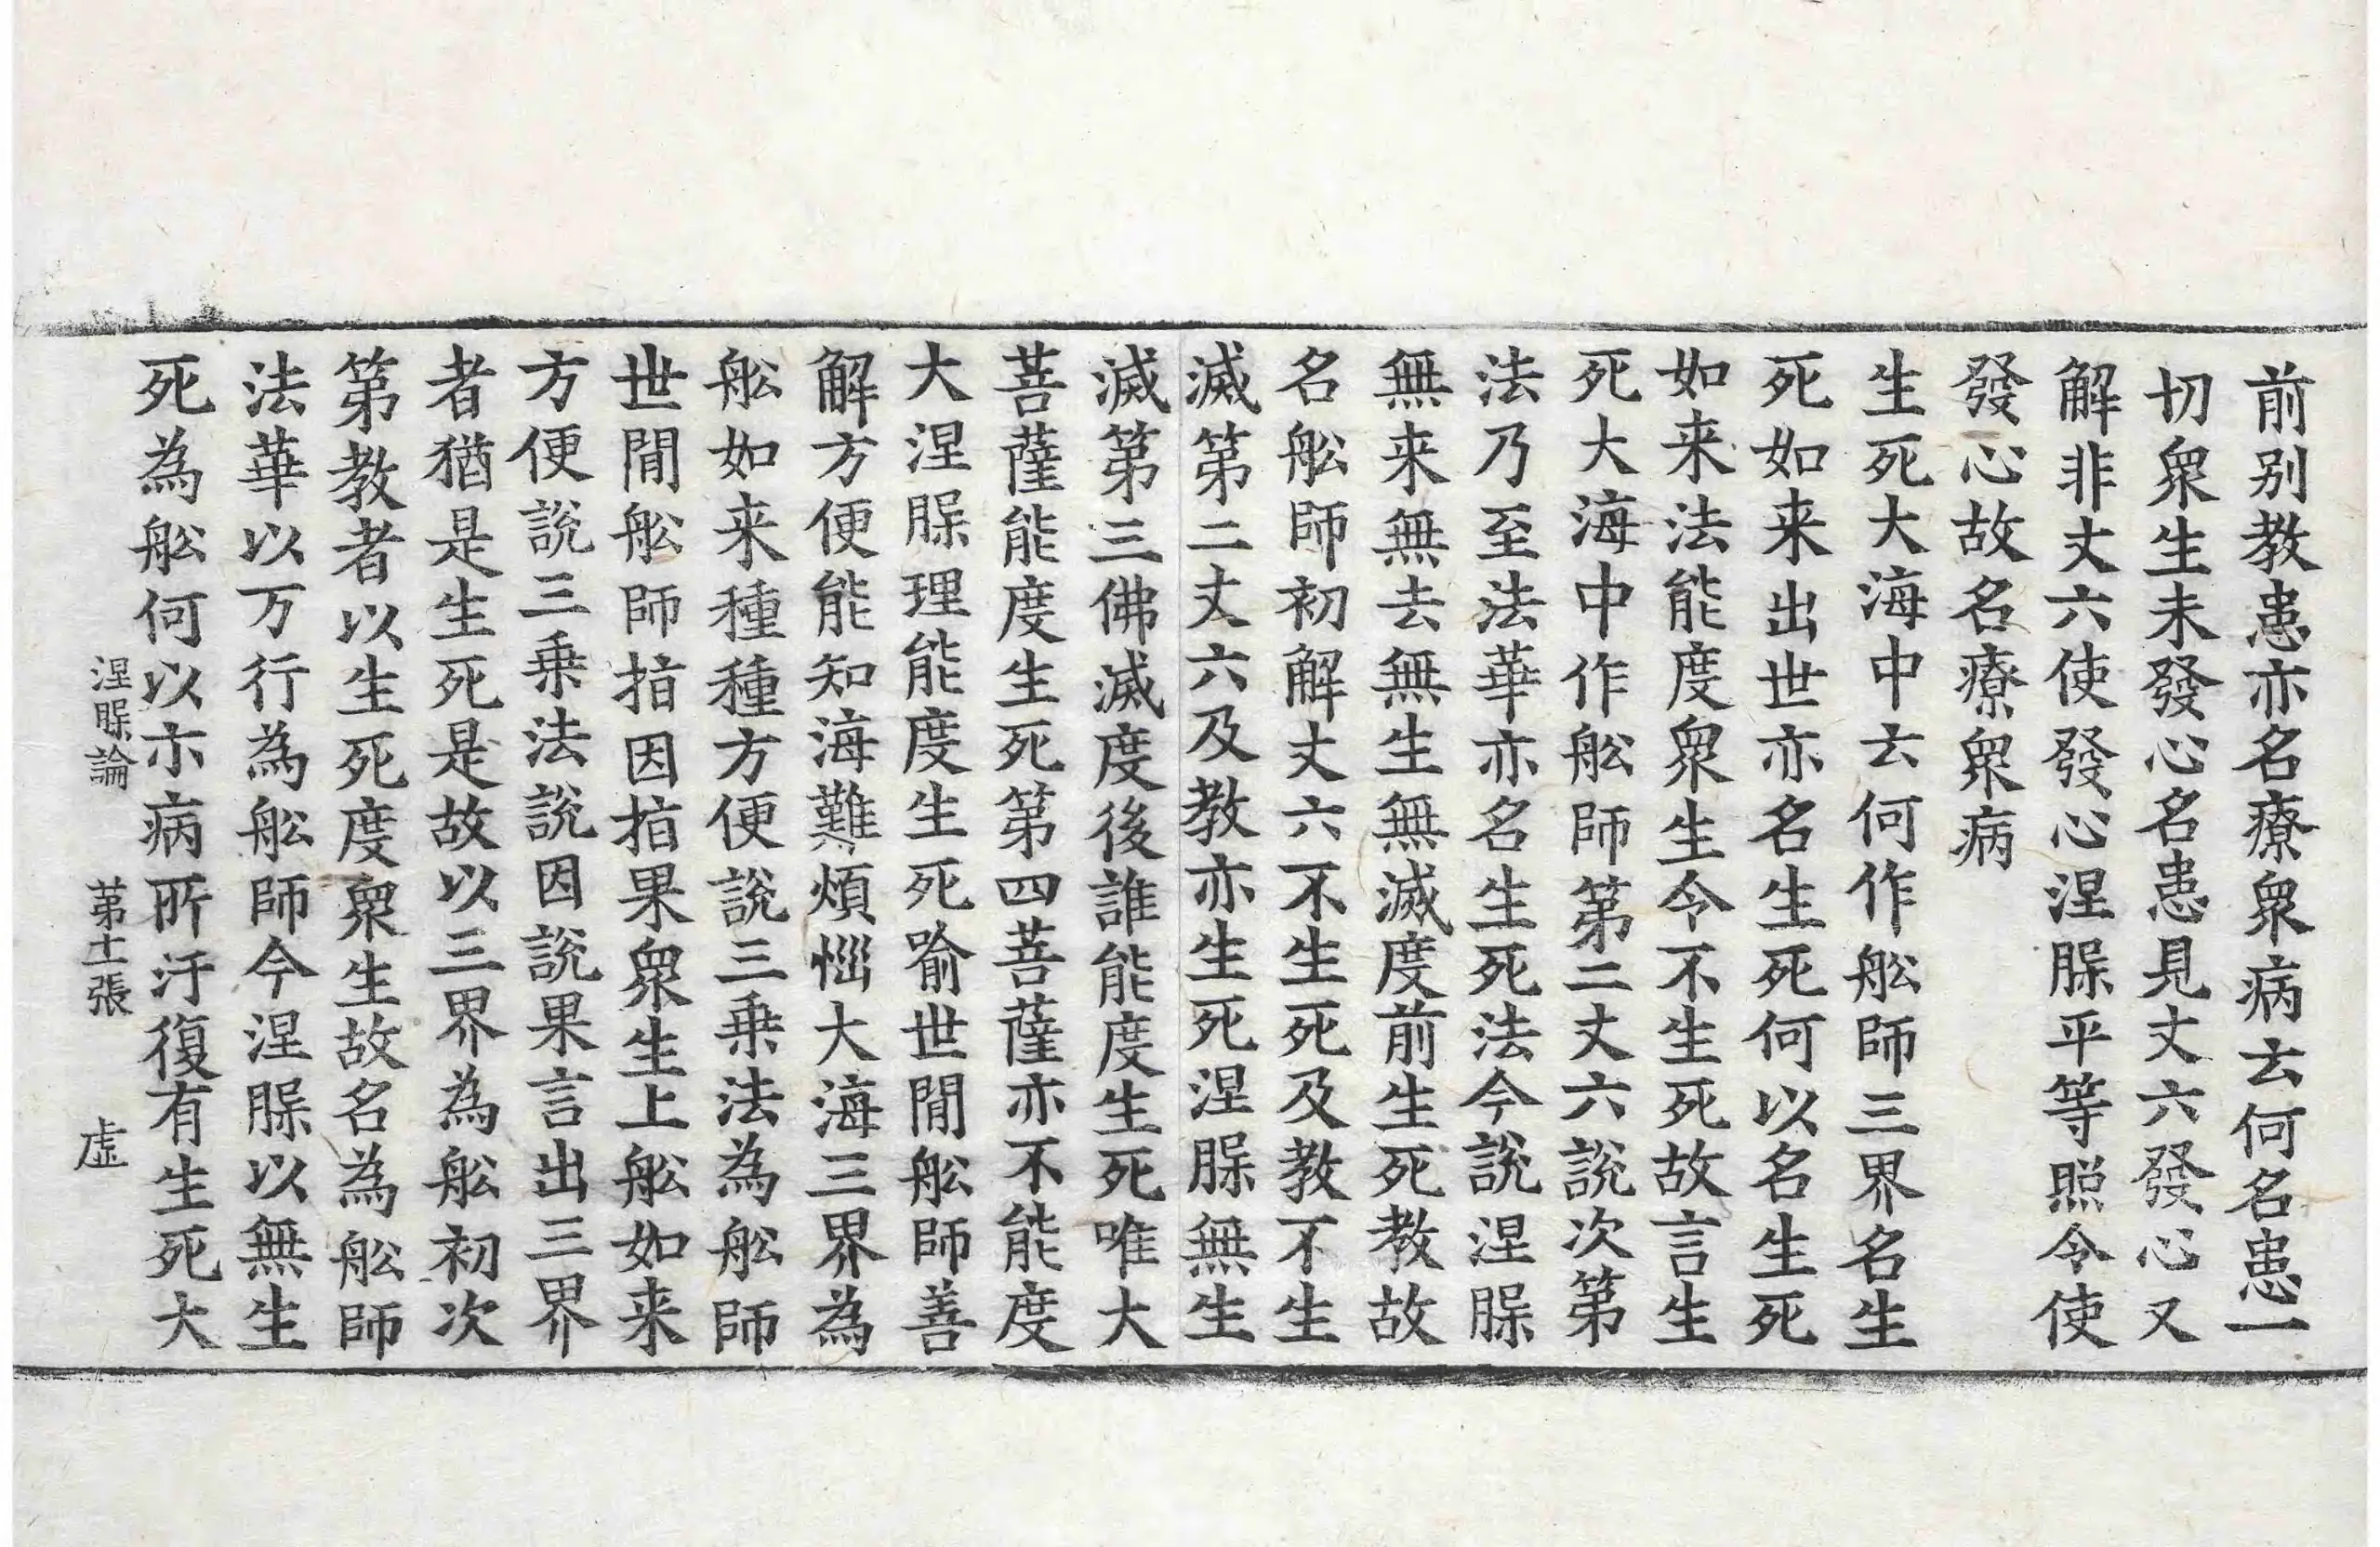 前别教患亦名療衆病云何名患一
切衆生未發心名患見丈六發心又
解非丈六使發心涅䏶平等照令使
發心故名療衆病
生死大海中云何作舩師三界名生
死如来出世亦名生死何以名生死
如来法能度衆生令不生死故言生
死大海中作舩師第二丈六說次第
法乃至法華亦名生死法今說涅䏶
無来無去無生無滅度前生死教故
名舩師初解丈六不生死及教不生
滅第二丈六及教亦生死涅䏶無生
滅第三佛滅度後誰能度生死唯大
菩薩能度生死第四菩薩亦不能度
大涅䏶理能度生死喻世間舩師善
解方便能知海難煩惱大海三界為
舩如来種種方便說三乗法為舩師
世間舩師指因指果衆生上舩如来
方便說三乗法說因說果言出三界
者猶是生死是故以三界為舩初次
第教者以生死度衆生故名為舩師
法華以万行為舩師今涅䏶以無生
死為舩何以亦病所汙復有生死大
涅䏶論 第十張 虛